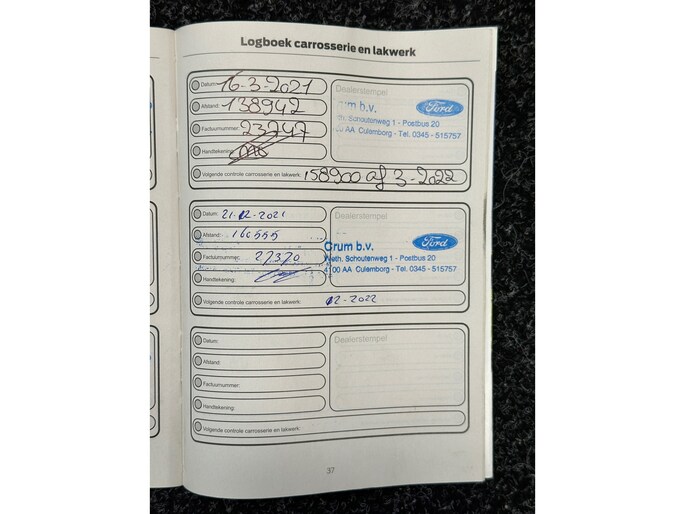 Logboek carrosserie en lakwerk
Datum: 16-3-2021
Dealerstempel
Afstand: 138942
um b.v.
Ford
Factuurnummer: 23747
th. Schoutenweg 1 - Postbus 20
AA Culemborg - Tel. 0345 - 515757
Handtekening:
Volgende controle carrosserie en lakwerk: 158900 of 3-2022
Datum: 21-12-2021
Dealerstempel
Afstand: 160555
Crum b.v.
Ford
Factuurnummer: 27370
Weth. Schoutenweg 1 - Postbus 20
4100 AA Culemborg - Tel. 0345 - 515757
Handtekening:
Volgende controle carrosserie en lakwerk: 12-2022
Datum:
Dealerstempel
Afstand:
Factuurnummer:
Handtekening:
Volgende controle carrosserie en lakwerk:
37